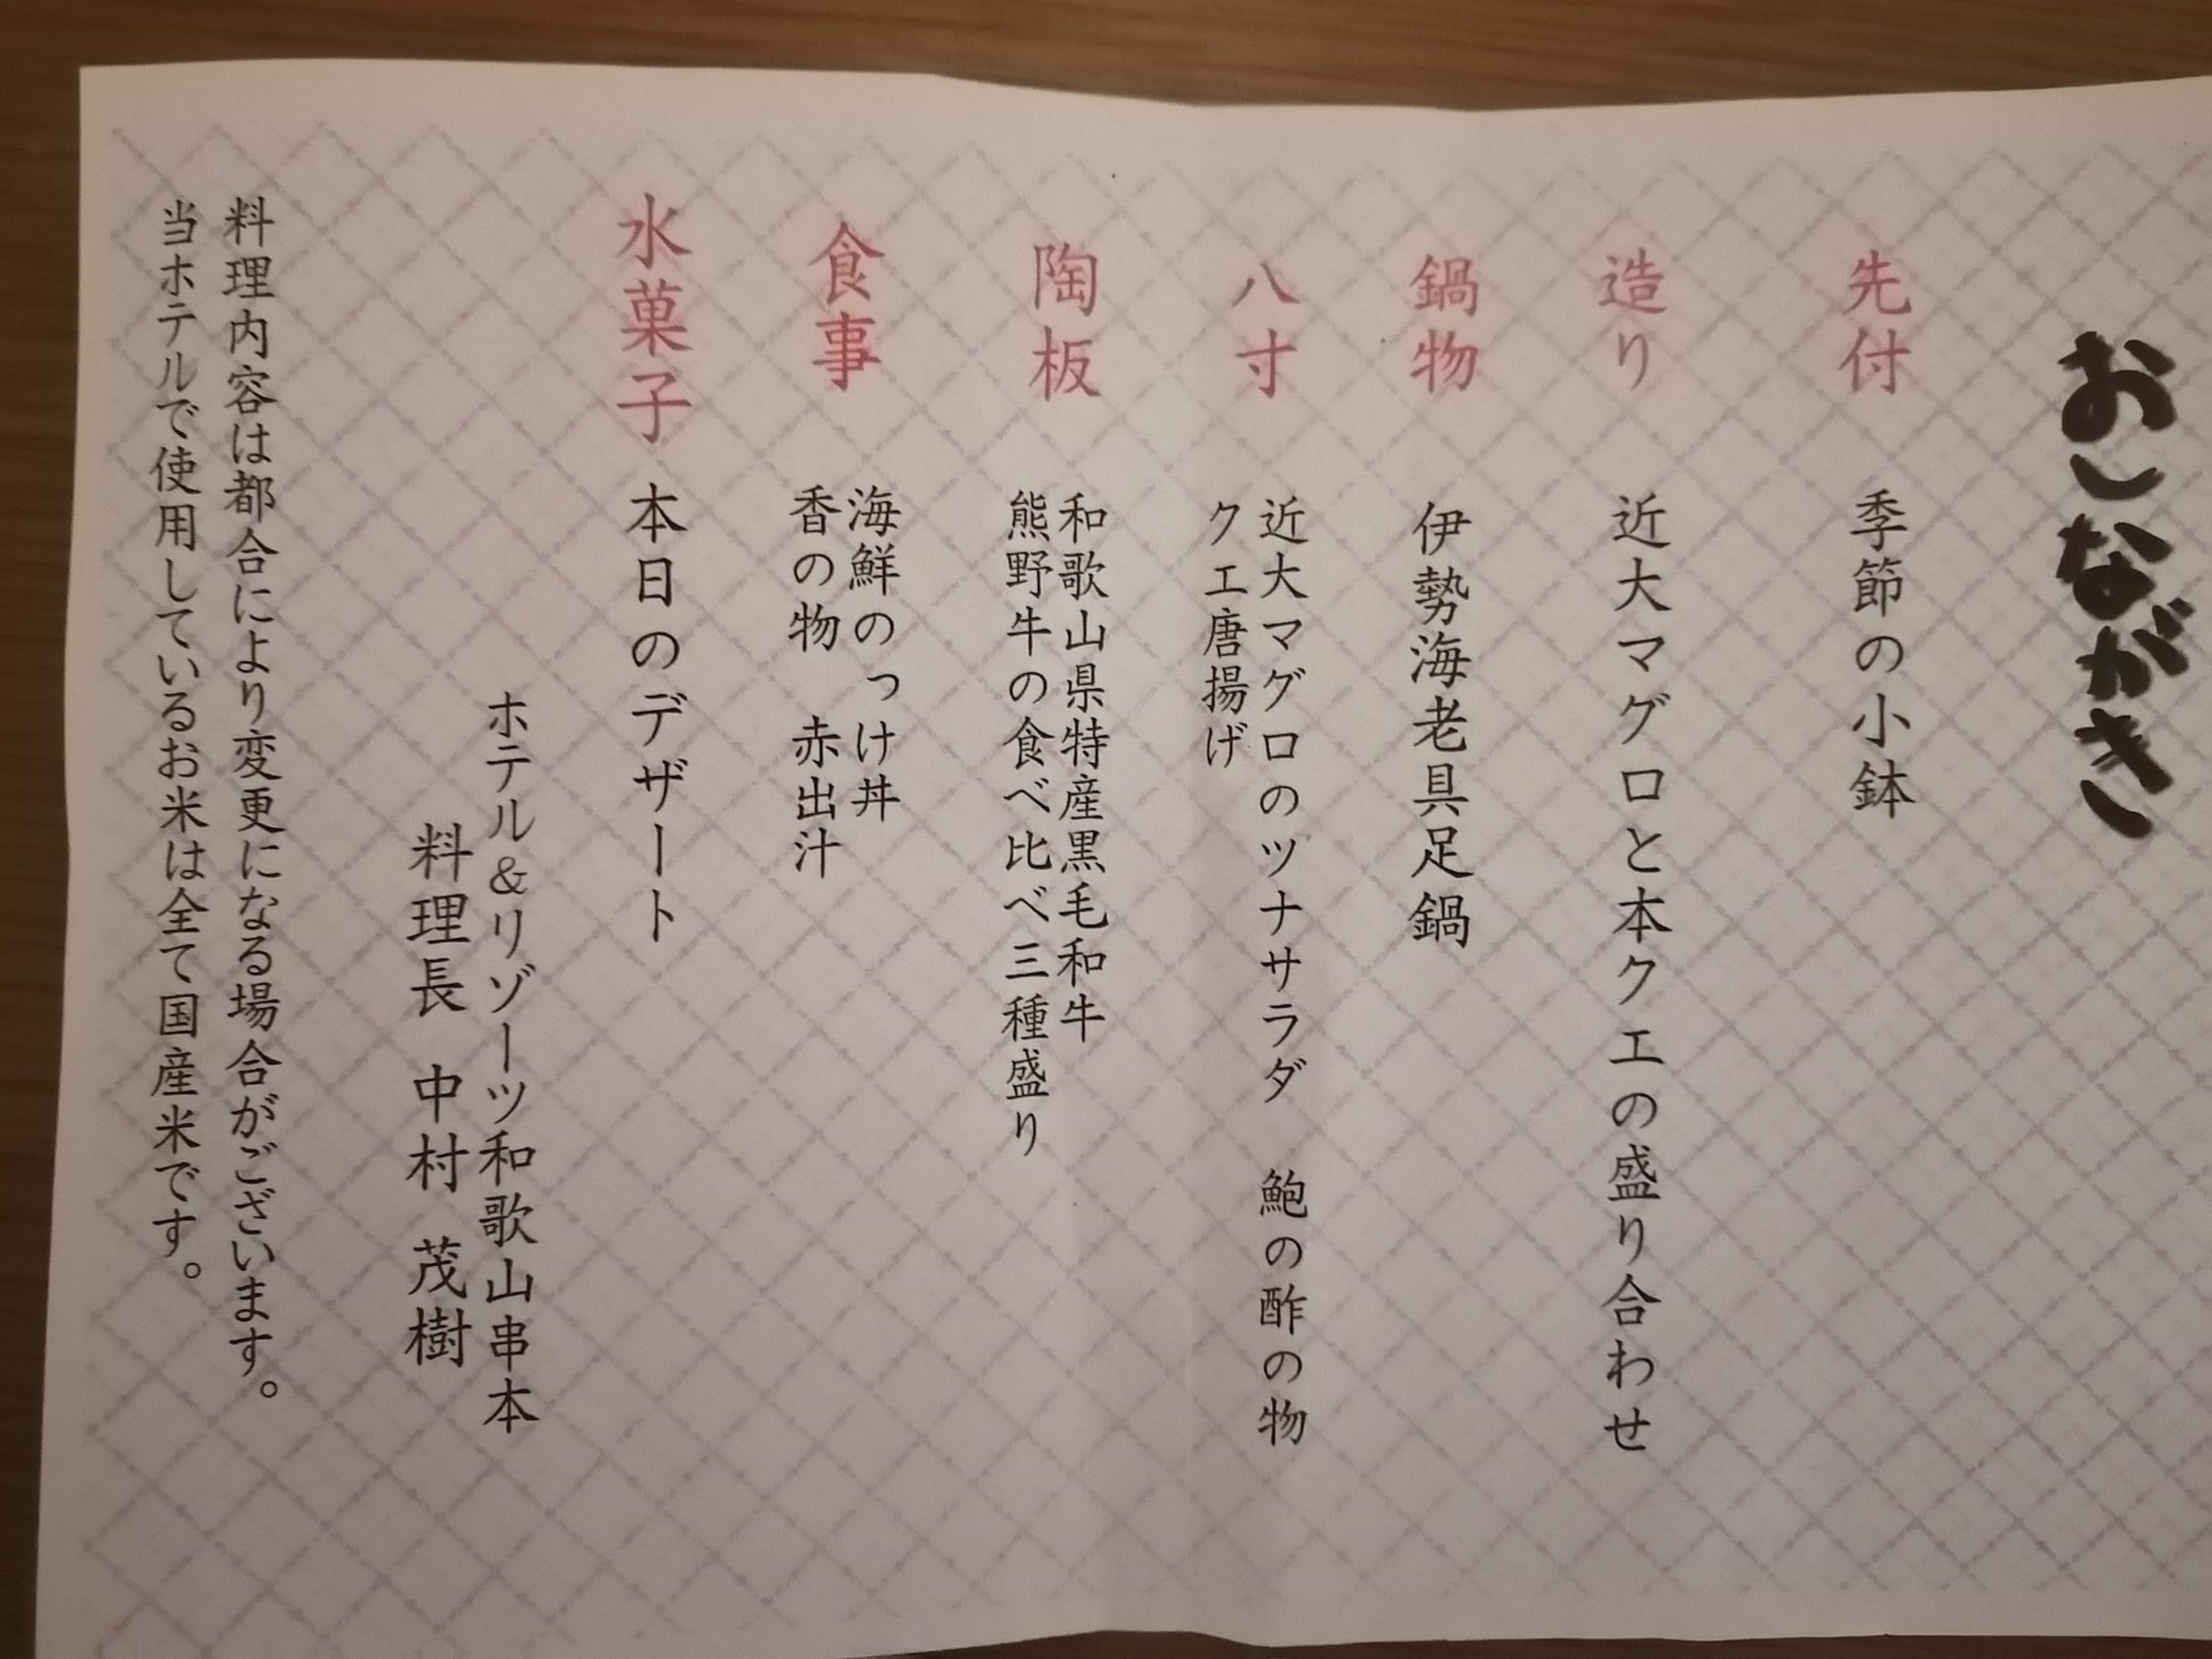 おしながき
先付
季節の小鉢
造り
近大マグロと本クエの盛り合わせ
鍋物
伊勢海老具足鍋
八寸
近大マグロのツナサラダ　鮑の酢の物
クエ唐揚げ
陶板
和歌山県特産黒毛和牛
熊野牛の食べ比べ三種盛り
食事
海鮮のっけ丼
香の物　赤出汁
水菓子
本日のデザート
ホテル&リゾーツ和歌山串本
料理長　中村　茂樹
料理内容は都合により変更になる場合がございます。
当ホテルで使用しているお米は全て国産米です。